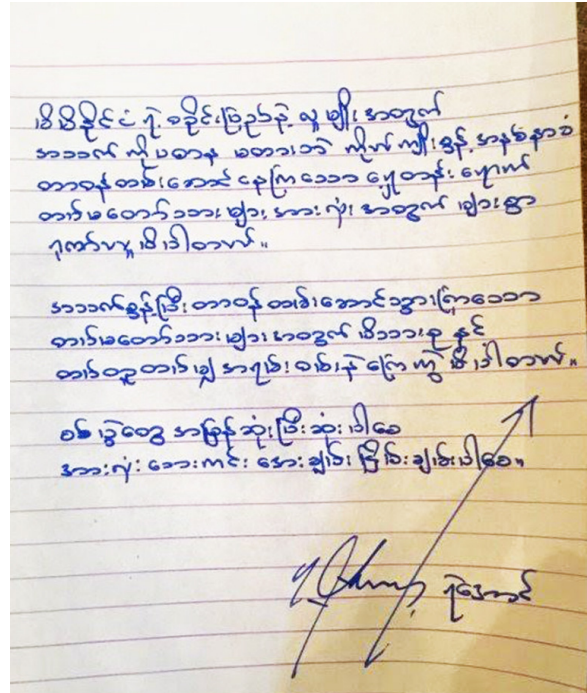 မိမိနိုင်ငံ ရဲ့ စခိုင်းမြဉ်နဲ့ လူမျိုး အတွက်
အသက် ကိုပဓာန မထားဘဲ ကိုယ်ကျိုးစွန့် အနစ်နာခံ
တာဝန်ထမ်းဆောင်နေကြသော ရှေ့တန်းရောက်
တပ်မတော်သားများ အားလုံး အတွက် များစွာ
ဂုဏ်ယူမိပါတယ်။
အသက်စွန့်ပြီး တာဝန်ထမ်းဆောင်သွားကြသော
တပ်မတော်သားများ အတွက် မိသားစု နှင့်
ထပ်တူထပ်မျှ အရမ်း ဝမ်းနဲကြေကွဲမိပါတယ်။
စစ်ပွဲတွေ အမြန်ဆုံးပြီးဆုံးပါစေ
အားလုံး ဘေးကင်း အေးချမ်း ငြိမ်းချမ်းပါစေ။
ရဲအောင်